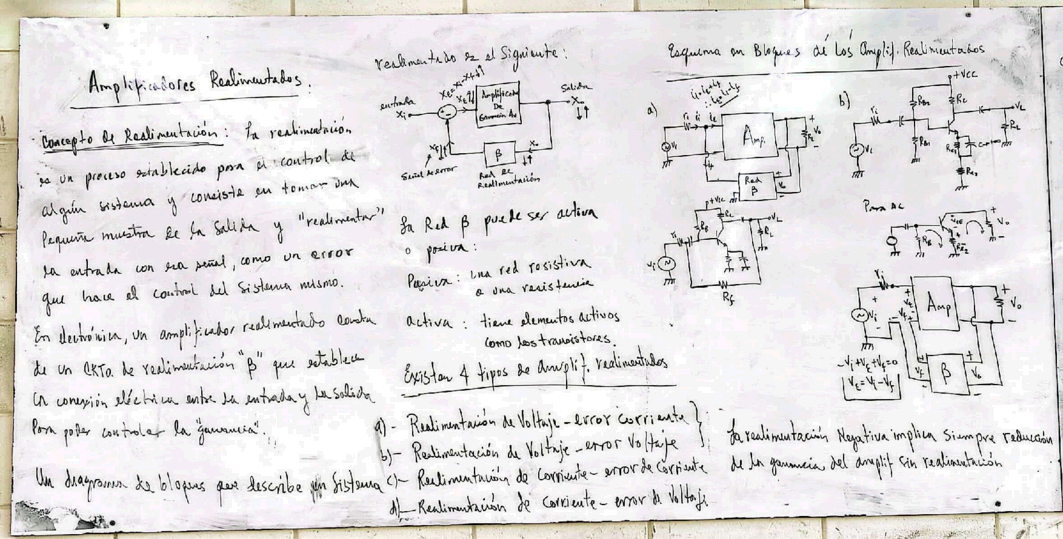 Amplificadores Realimentados:
Concepto de Realimentación: La realimentación
es un proceso establecido para el control de
algún sistema y consiste en tomar una
pequeña muestra de la salida y "realimentar"
la entrada con esa señal, como un error
que hace el control del sistema mismo.
En electrónica, un amplificador realimentado consta
de un CKTO de realimentación "β" que establece
la conexión eléctrica entre la entrada y la salida
para poder controlar la "ganancia".
Un diagrama de bloques que describe un sistema
realimentado es el siguiente:
entrada
Xi
Amplificador
De
Ganancia
Salida
Xo
β
Señal de error
Red de
Realimentación
La Red β puede ser activa
o pasiva:
Pasiva: una red resistiva
o una resistencia
activa: tiene elementos activos
como los transistores.
Existen 4 tipos de amplif. realimentados
a)- Realimentación de Voltaje - error corriente
b)- Realimentación de Voltaje - error Voltaje
c)- Realimentación de Corriente - error de Corriente
d)- Realimentación de Corriente - error de Voltaje
Esquema en Bloques de Los Amplif. Realimentados
a)
Amp.
Red
β
+VCC
RL
Vi
Rf
b)
+VCC
Vi
RL
Para AC
Vo
ri
Vi
Amp
Vo
β
-Vi+VE+Vf=0
VE=Vi-Vf
La realimentación Negativa implica Siempre reducción
de la ganancia del amplif sin realimentación